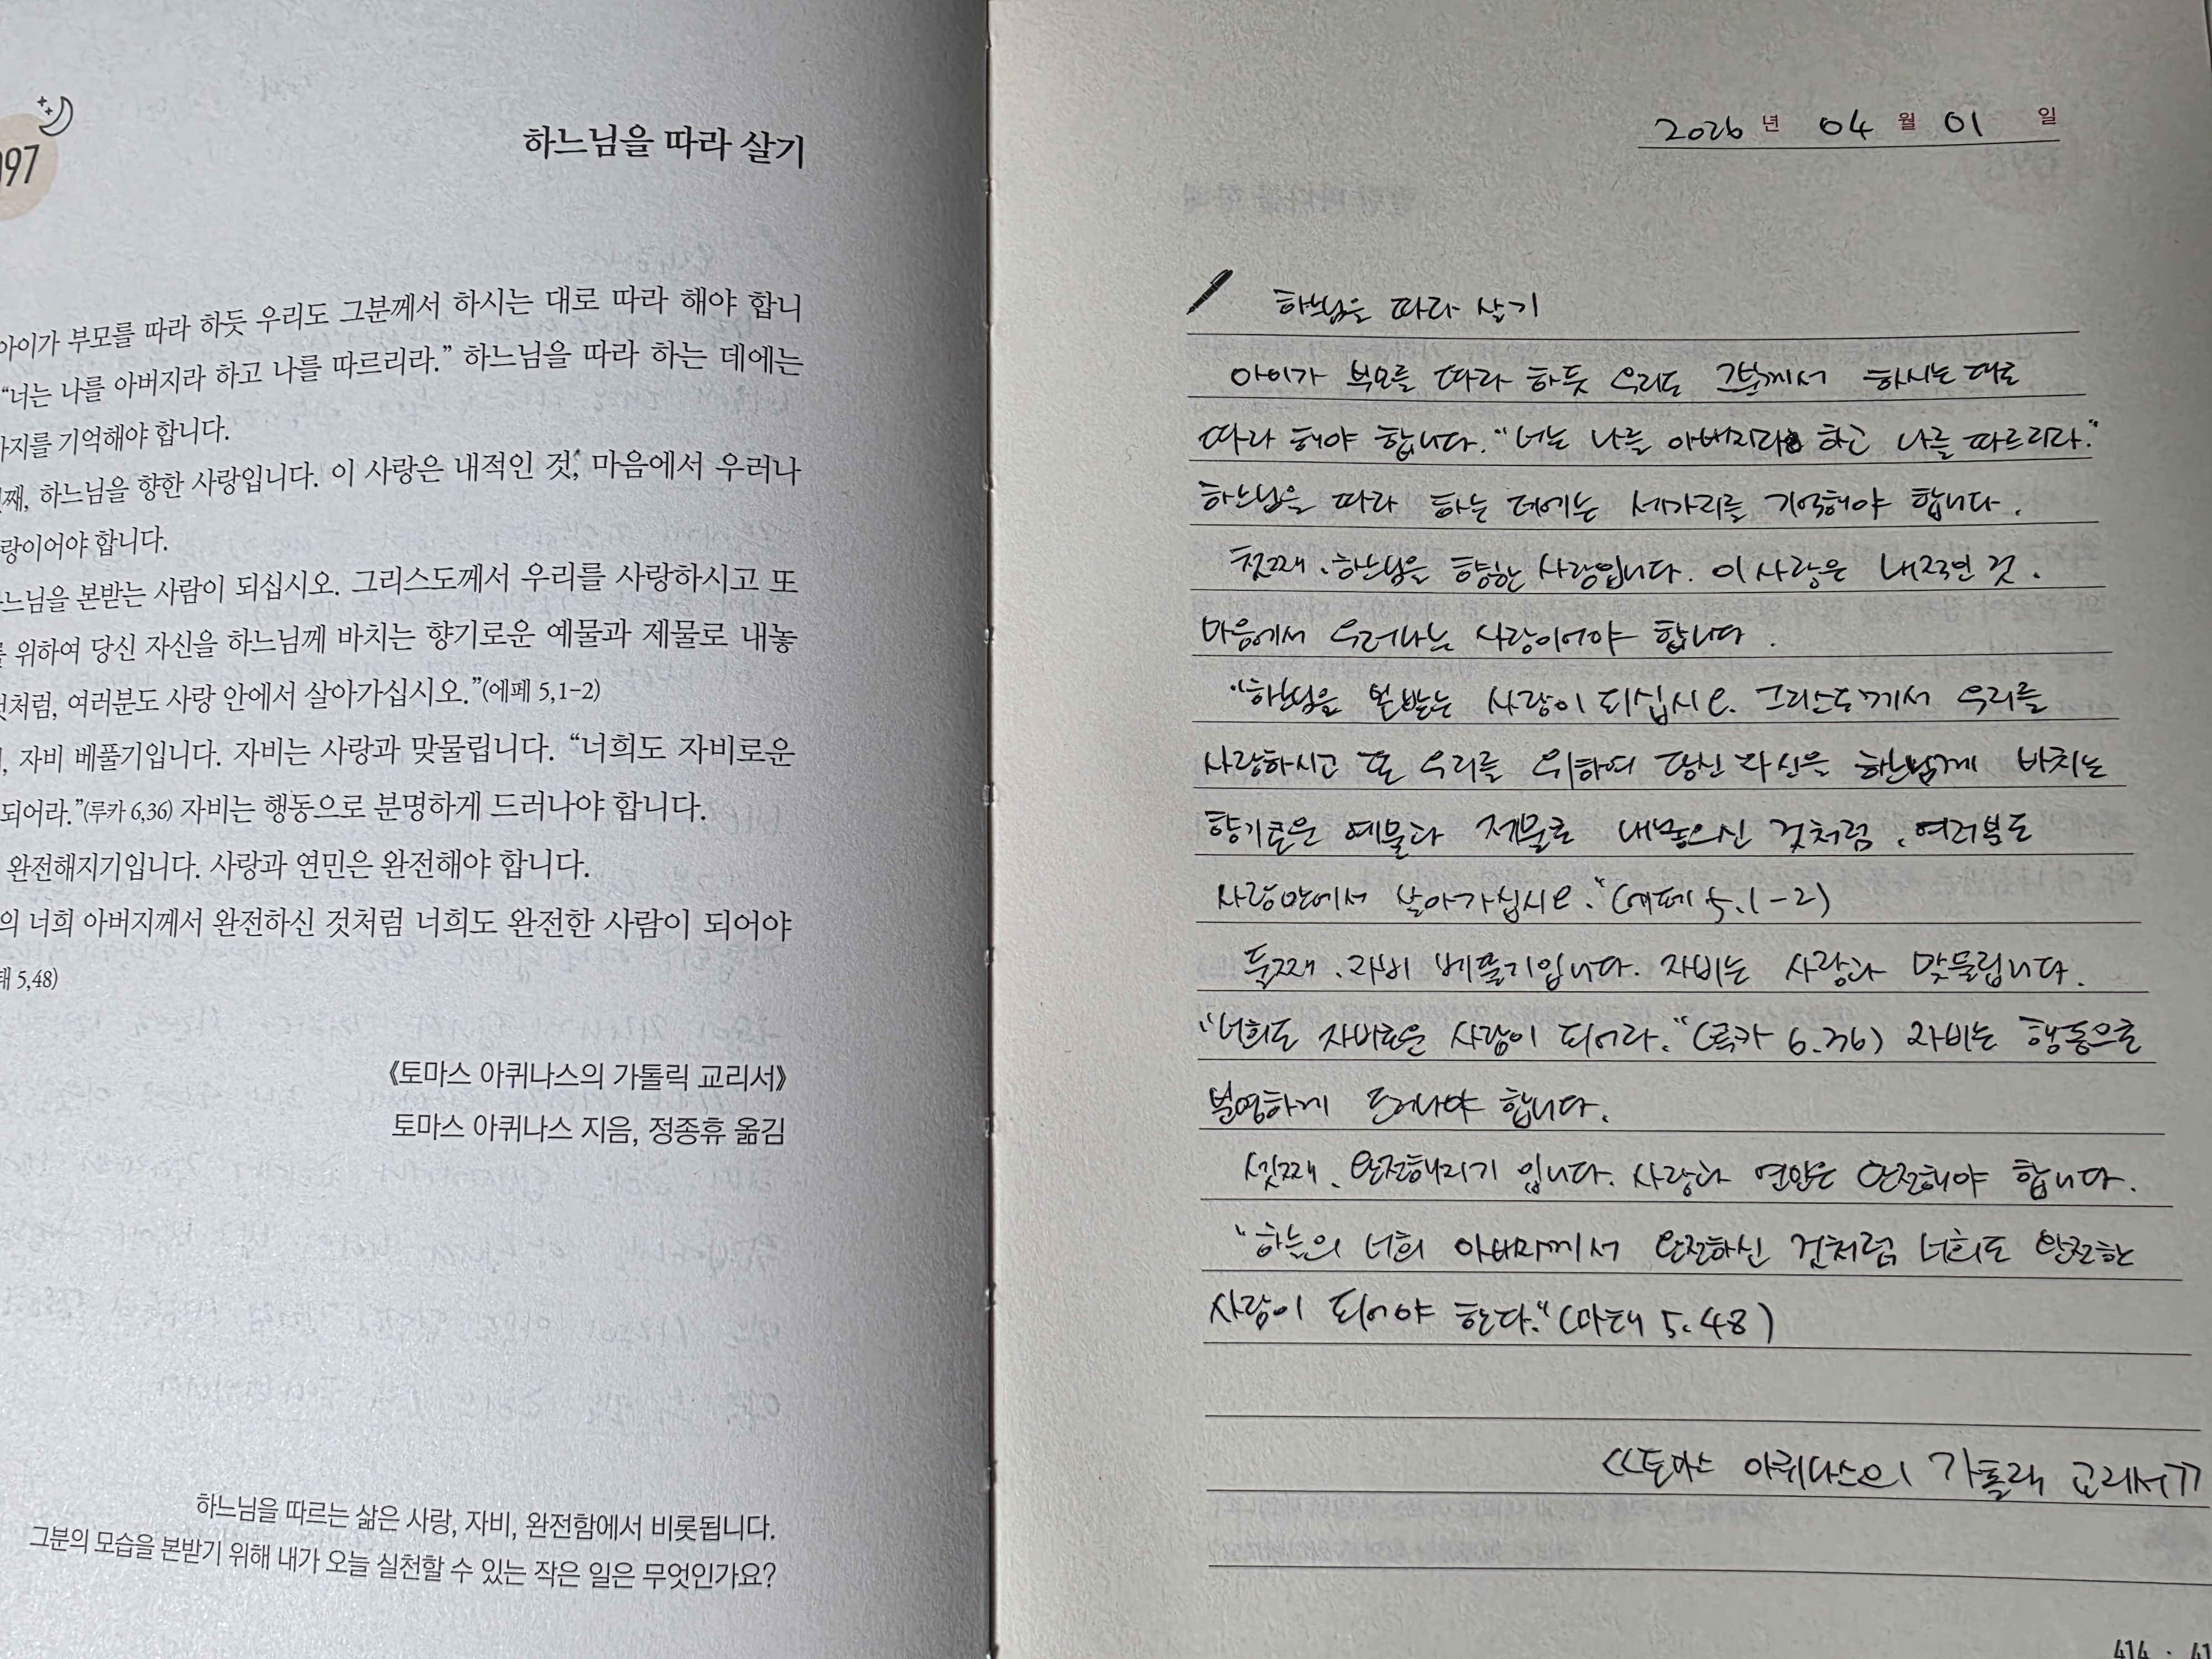 97
하느님을 따라 살기
아이가 부모를 따라 하듯 우리도 그분께서 하시는 대로 따라 해야 합니
“너는 나를 아버지라 하고 나를 따르리라.” 하느님을 따라 하는 데에는
가지를 기억해야 합니다.
째, 하느님을 향한 사랑입니다. 이 사랑은 내적인 것, 마음에서 우러나
랑이어야 합니다.
느님을 본받는 사람이 되십시오. 그리스도께서 우리를 사랑하시고 또
를 위하여 당신 자신을 하느님께 바치는 향기로운 예물과 제물로 내놓
것처럼, 여러분도 사랑 안에서 살아가십시오.”(에페 5,1-2)
, 자비 베풀기입니다. 자비는 사랑과 맞물립니다. “너희도 자비로운
되어라.”(루카 6,36) 자비는 행동으로 분명하게 드러나야 합니다.
완전해지기입니다. 사랑과 연민은 완전해야 합니다.
의 너희 아버지께서 완전하신 것처럼 너희도 완전한 사람이 되어야
태 5,48)
《토마스 아퀴나스의 가톨릭 교리서》
토마스 아퀴나스 지음, 정종휴 옮김
하느님을 따르는 삶은 사랑, 자비, 완전함에서 비롯됩니다.
그분의 모습을 본받기 위해 내가 오늘 실천할 수 있는 작은 일은 무엇인가요?
2026 년 04 월 01 일
하느님을 따라 살기
아이가 부모를 따라 하듯 우리도 그분께서 하시는 대로
따라 해야 합니다. “너는 나를 아버지라 하고 나를 따르리라.”
하느님을 따라 하는 데에는 세가지를 기억해야 합니다.
첫째, 하느님을 향한 사랑입니다. 이 사랑은 내적인 것,
마음에서 우러나는 사랑이어야 합니다.
“하느님을 본받는 사람이 되십시오. 그리스도께서 우리를
사랑하시고 또 우리를 위하여 당신 자신을 하느님께 바치는
향기로운 예물과 제물로 내놓으신 것처럼, 여러분도
사랑안에서 살아가십시오.”(에페 5.1-2)
둘째, 자비 베풀기입니다. 자비는 사랑과 맞물립니다.
“너희도 자비로운 사람이 되어라.”(루카 6.36) 자비는 행동으로
분명하게 드러나야 합니다.
셋째, 완전해지기 입니다. 사랑과 연민은 완전해야 합니다.
“하늘의 너희 아버지께서 완전하신 것처럼 너희도 완전한
사람이 되어야 한다.”(마태 5.48)
<<토마스 아퀴나스의 가톨릭 교리서>>
414 · 41